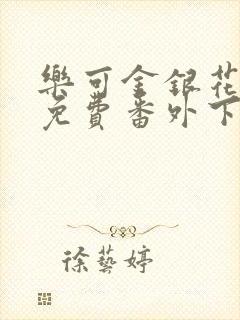 樂可金銀花
免費番外下
徐藝婷